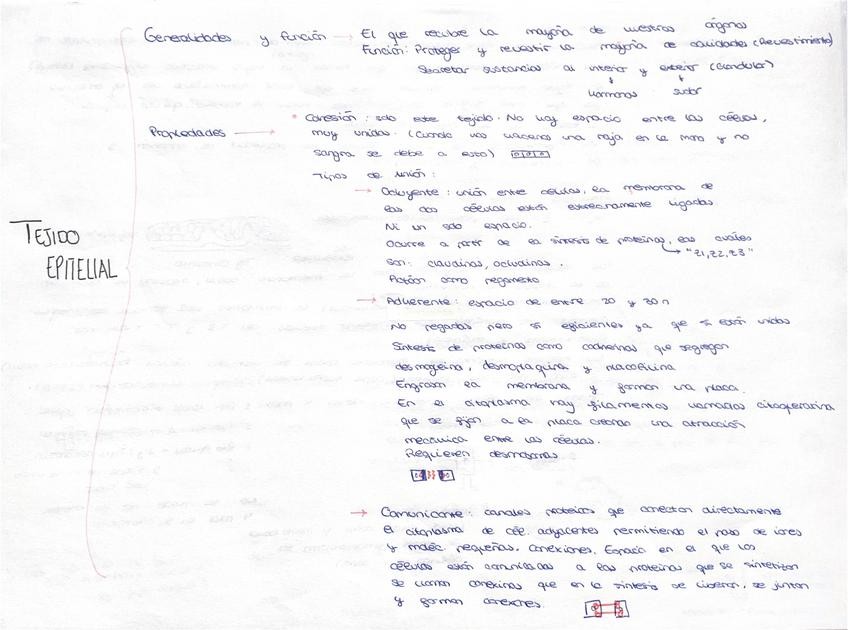 Generalidades y función → El que recubre la mayoría de nuestros órganos
Función: Proteger y revestir la mayoría de cavidades (Revestimiento)
Secretar sustancias al interior y exterior (Glandular)
Hormonas sudor
Propiedades → * Cohesión: solo este tejido. No hay espacio entre las células,
muy unidas. (Cuando nos hacemos una raja en la mano y no
sangra se debe a esto)
Tipos de unión:
→ Ocluyente: unión entre células, la membrana de
las dos células están estrechamente ligadas
Ni un solo espacio.
Ocurre a partir de la síntesis de proteínas, las cuales
son: claudinas, ocludinas. "Z1, Z2, Z3"
Actúan como pegamento
TEJIDO
EPITELIAL
→ Adherente: espacio de entre 20 y 30 n
No pegadas pero si eficientes ya que si están unidas
Síntesis de proteínas como cadherinas que segregan
desmogleína, desmoplaquina y placofilina
Engrosan la membrana y forman una placa.
En el citoplasma hay filamentos llamados
que se fijan a la placa creando una atracción
mecánica entre las células.
Requieren desmosomas
→ Comunicante: canales proteicos que conectan directamente
el citoplasma de cél. adyacentes permitiendo el paso de iones
y moléc. pequeñas. Conexiones. Espacio en el que las
células están comunicadas a las proteínas que se sintetizan
se llaman conexinas que en la síntesis se liberan, se juntan
y forman conexones.